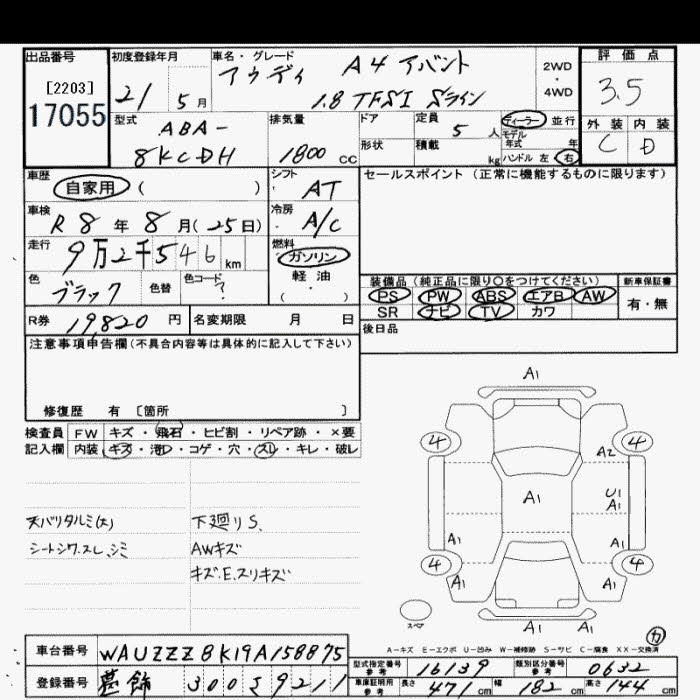 出品番号 初度登録年月 車名・グレード 評価点
[2203] アウディ A4 アバント 2WD
・
17055 21 5月 1.8 TFSI Sライン 4WD 3.5
型式 排気量 ドア 定員 ディーラー 並行 外装 内装
ABA- 5人 モデル年式 年 C D
8KCDH 1800cc 形状 積載 kg ハンドル 左 右
車歴 シフト セールスポイント (正常に機能するものに限ります)
自家用 ( ) AT
車検 冷房
R8年8月(25日) A/C
走行 9万2千546km 燃料
ガソリン
色 色替 色コード 軽油 装備品 (純正品に限り○をつけてください) 新車保証書
ブラック ? ( ) PS PW ABS エアB AW 有・無
R券 19,820円 名変期限 月 日 SR ナビ TV カワ
後日品
注意事項申告欄(不具合内容等は具体的に記入して下さい)
修復歴 有 〔箇所 〕
検査員 FW キズ・飛石・ヒビ割・リペア跡・×要
記入欄 内装 キズ・汚れ・コゲ・穴・スレ・キレ・破レ
天バリタルミ(大) 下廻りS、
シートシワ.スレ、シミ AWキズ
キズ.E.スリキズ
A1
4 4
A2
A1 U1
A1
A1 A1
4 4
A1 A1
スペア
A1 A1
A-キズ E-エクボ U-凹み W-補修跡 S-サビ C-腐食 XX-交換済
車台番号 WAUZZZ8K19A158875 型式指定番号 参考 16139 類別区分番号 参考 0632
登録番号 葛飾 300 S 9211 車庫証明用 参考 長さ 471cm 幅 182cm 高さ 144cm